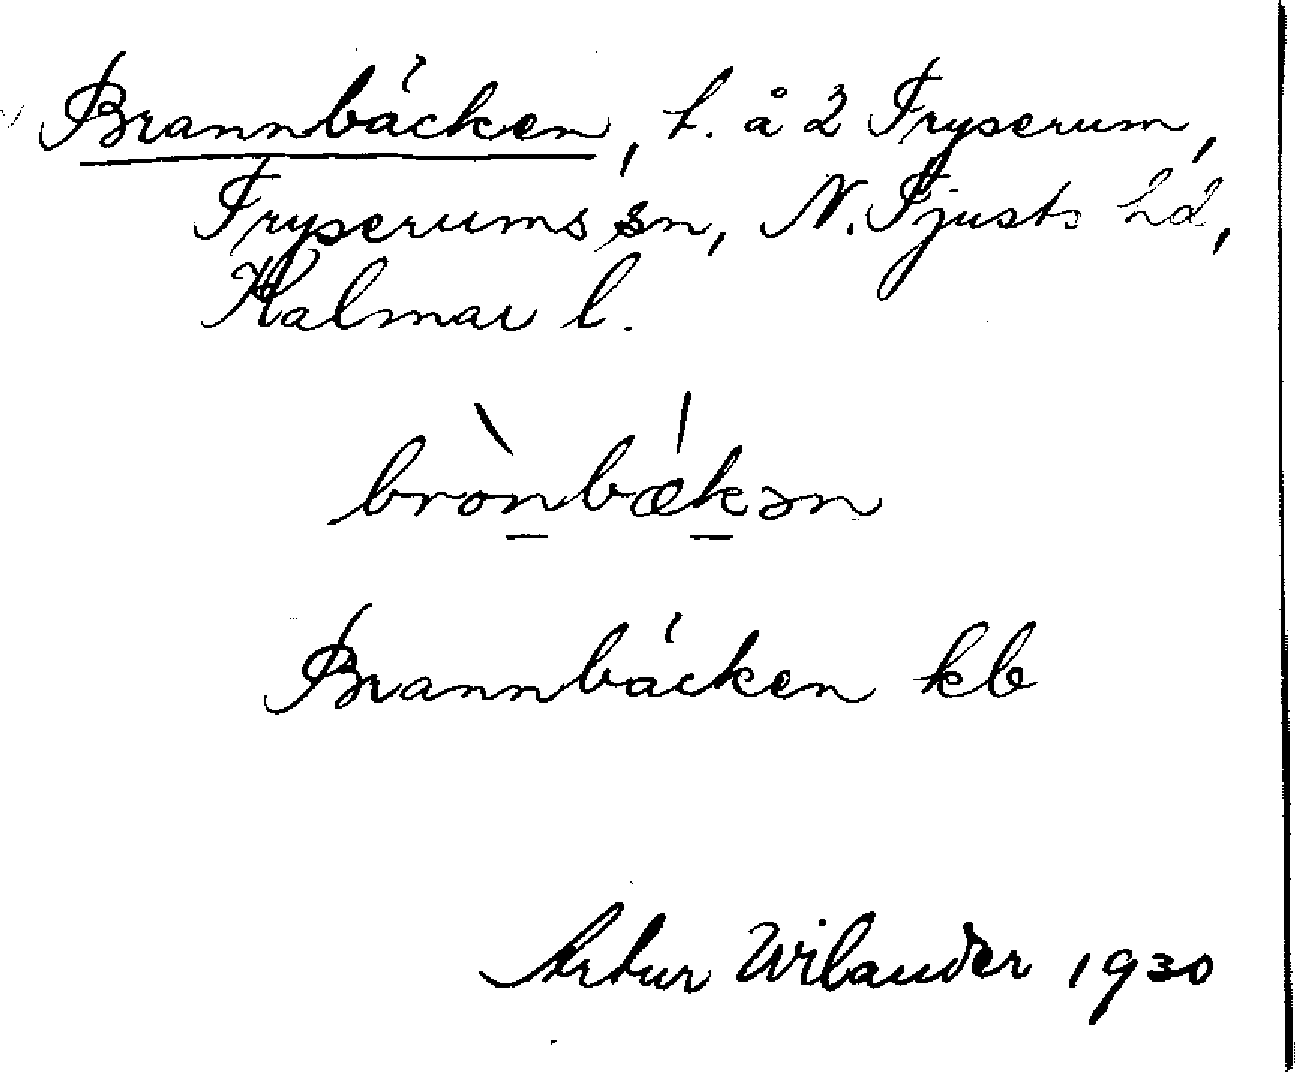 Brannbäcken, t. å 2 Fryserum,
Fryserums sn, N. Tjusts hd,
Kalmar l.
brònbǽkən
Brannbäcken kb
Artur Wilander 1930